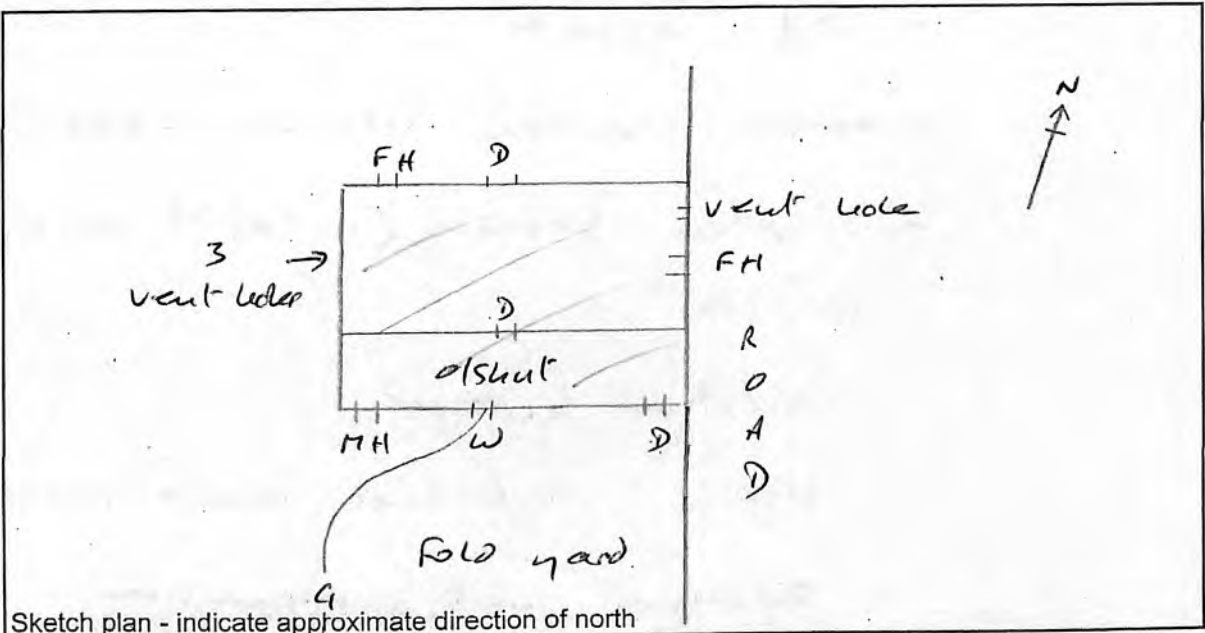 N
F H D
vent hole
3 →
vent holes
F H
D
R
O
A
D
o/shut
M H W D
Fold yard
G
Sketch plan - indicate approximate direction of north